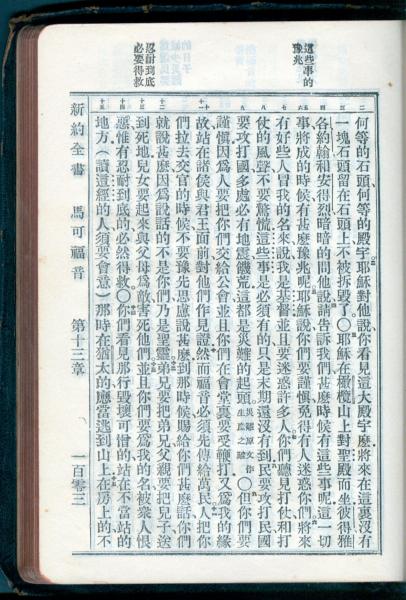 這些事的
豫兆
忍耐到底
必要得救
何等的石頭何等的殿宇耶穌對他說你看見這大殿宇麼將來在這裏沒有
一塊石頭留在石頭上不被拆毀了〇耶穌在橄欖山上對聖殿而坐彼得雅
各約翰和安得烈暗暗的問他說請告訴我們甚麼時候有這些事呢這一切
事將成的時候有甚麼豫兆呢耶穌說你們要謹慎免得有人迷惑你們將來
有好些人冒我的名來說我是基督並且要迷惑許多人你們聽見打仗和打
仗的風聲不要驚慌這些事是必須有的只是末期還沒有到民要攻打民國
要攻打國多處必有地震饑荒這都是災難的起頭災難原文作生產之難〇但你們要
謹愼因爲人要把你們交給公會並且你們在會堂裏要受鞭打又爲我的緣
故站在諸侯與君王面前對他們作見證然而福音必須先傳給萬民人把你
們拉去交官的時候不要豫先思慮說甚麼到那時候賜給你們甚麼話你們
就說甚麼因爲說話的不是你們乃是聖靈弟兄要把弟兄父親要把兒子送
到死地兒女要起來與父母爲敵害死他們並且你們要爲我的名被衆人恨
惡惟有忍耐到底的必然得救〇你們看見那行毀壞可憎的站在不當站的
地方（讀這經的人須要會意）那時在猶太的應當逃到山上在房上的不
新約全書 馬可福音 第十三章 一百零三